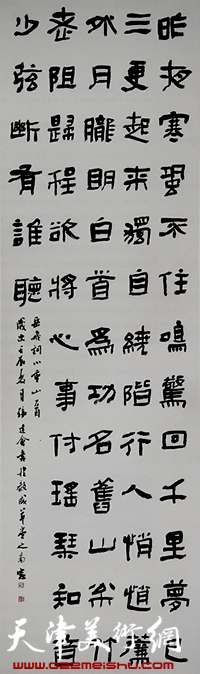 昨夜寒蛩不住鳴驚回千里夢已
三更起來獨自繞階行人悄悄簾
外月朧明白首為功名舊山松竹
老阻歸程欲將心事付瑤琴知音
少弦斷有誰聽
岳飛詞小重山一首
歲次壬辰夏月張建會書於成草堂之南窗
天津美術網
www.022meishu.com